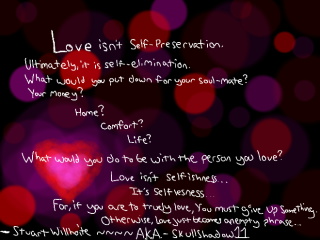 Love isn't Self-Preservation.
Ultimately, it is self-elimination.
What would you put down for your soul-mate?
Your money?
Home?
Comfort?
Life?
What would you do to be with the person you love?
Love isn't selfishness..
It's Selflesness
For, if you are to truely love, You must give up Something.
Otherwise, Love just becomes an empty phrase...
- Stuart Willhoite ~~~~~ AKA - Skullshadow11